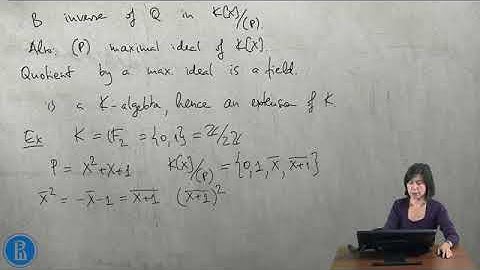 B inverse of Q in K[X]/(P).
Also: (P) maximal ideal of K[X].
Quotient by a max. ideal is a field.
is a K-algebra, hence an extension of K.
Ex K = F₂ = {0,1} = ℤ/2ℤ
P = x²+x+1 K[x]/(P) = {0, 1, x̅, \overline{x+1}}
x̅² = -x̅-1 = \overline{x+1} (\overline{x+1})²